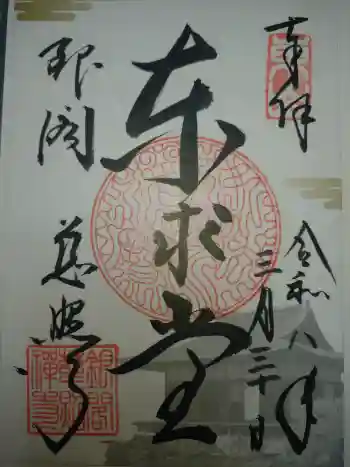 奉拝
令和八年
三月三十日
東求堂
銀閣
慈照寺